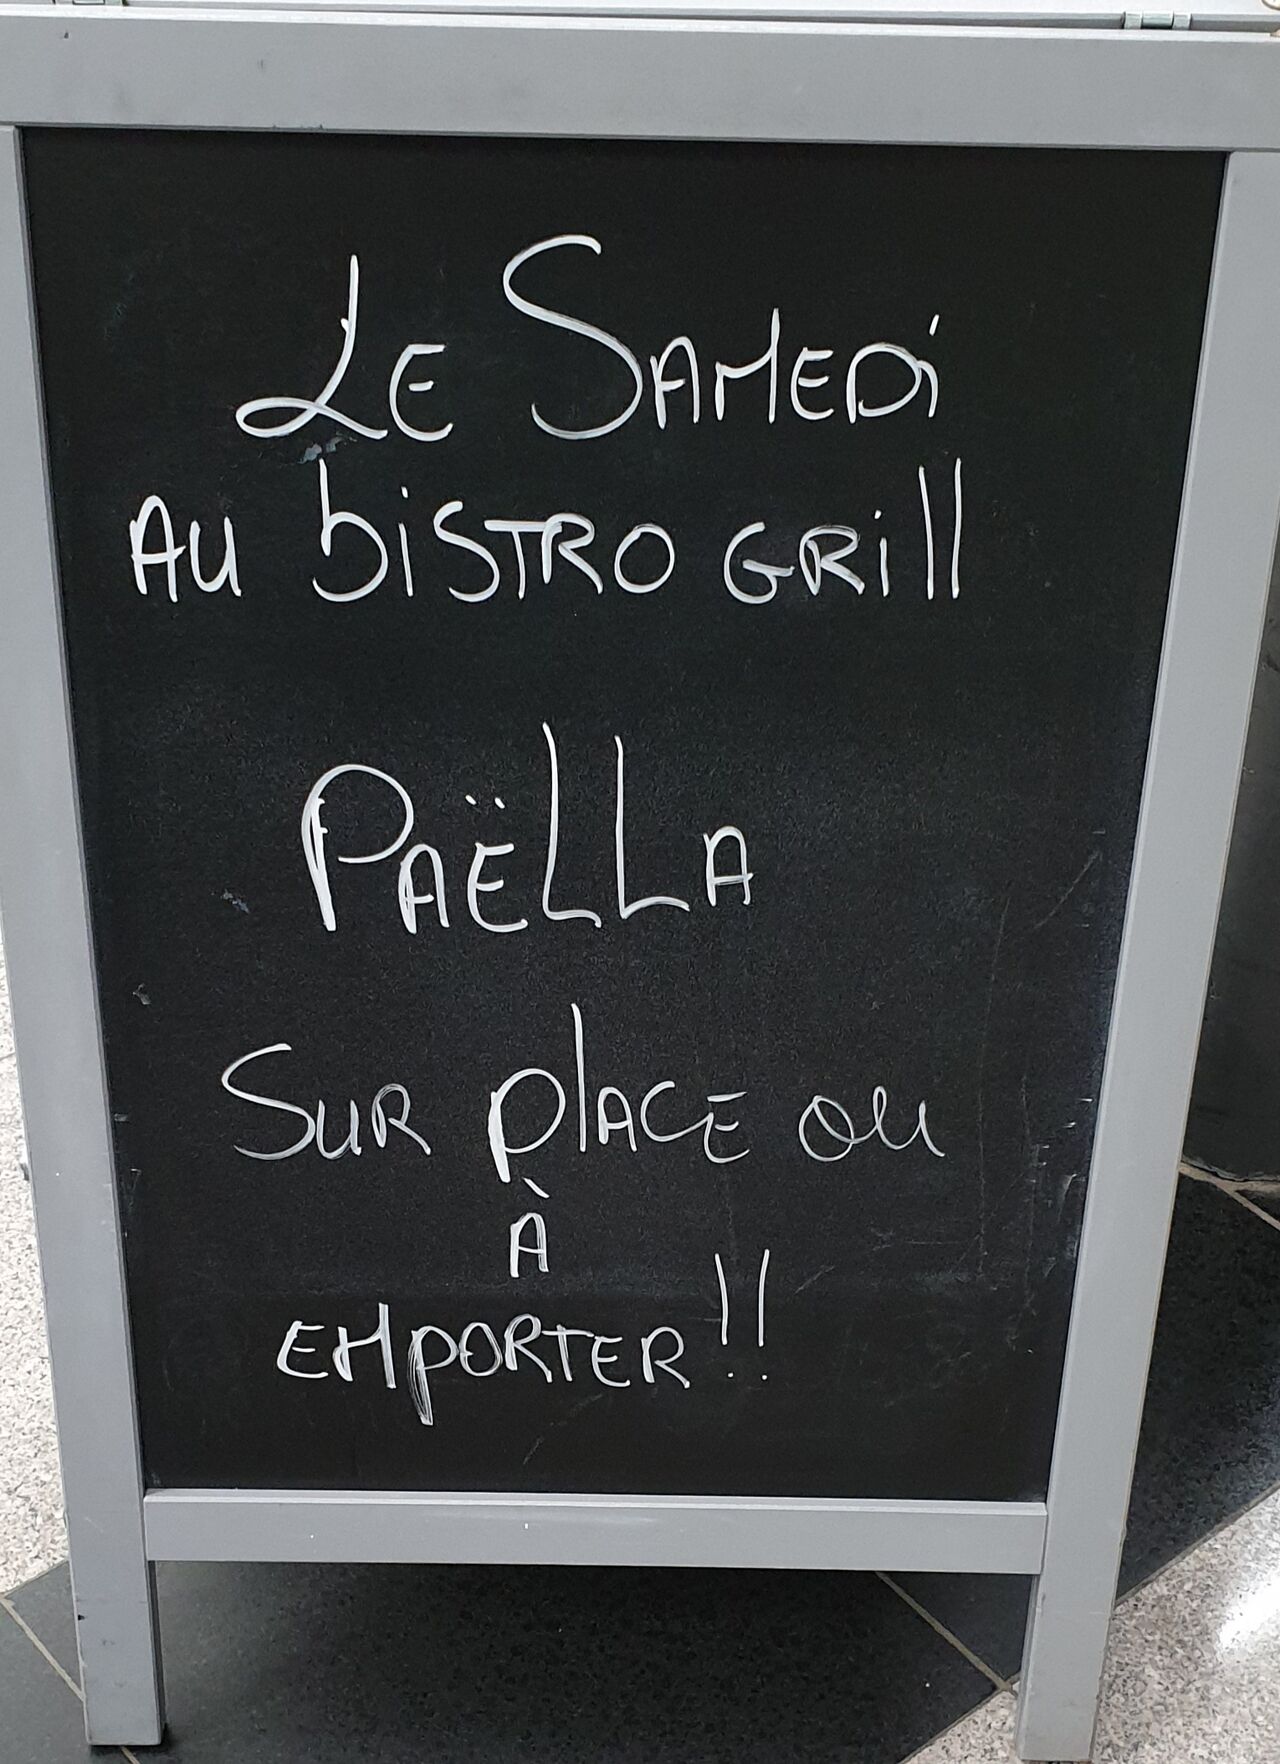 LE SAMEDi
AU biSTRO GRill
PAËLLA
SUR plACE ou
À
EMPORTER!!